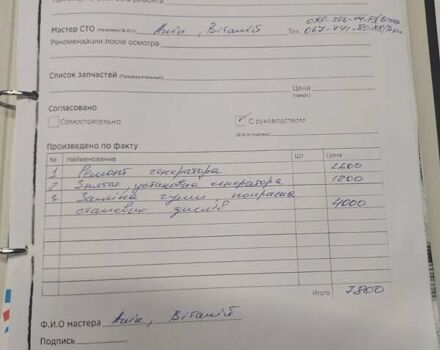 Мастер СТО (Название/Ф.И.О.) Аник, Віталій Тел.
Рекомендации после осмотра
Список запчастей (Предварительный) Цена
Согласовано
Самостоятельно ✓ С руководством
Произведено по факту
№ Наименование Шт. Цена
1 Ремонт генератора 2600
2 Зняття, установка генератора 1200
3. Заміна гуми, покраска 4000
стальних дисків
Итого 7800
Ф.И.О мастера Аник, Віталій
Подпись